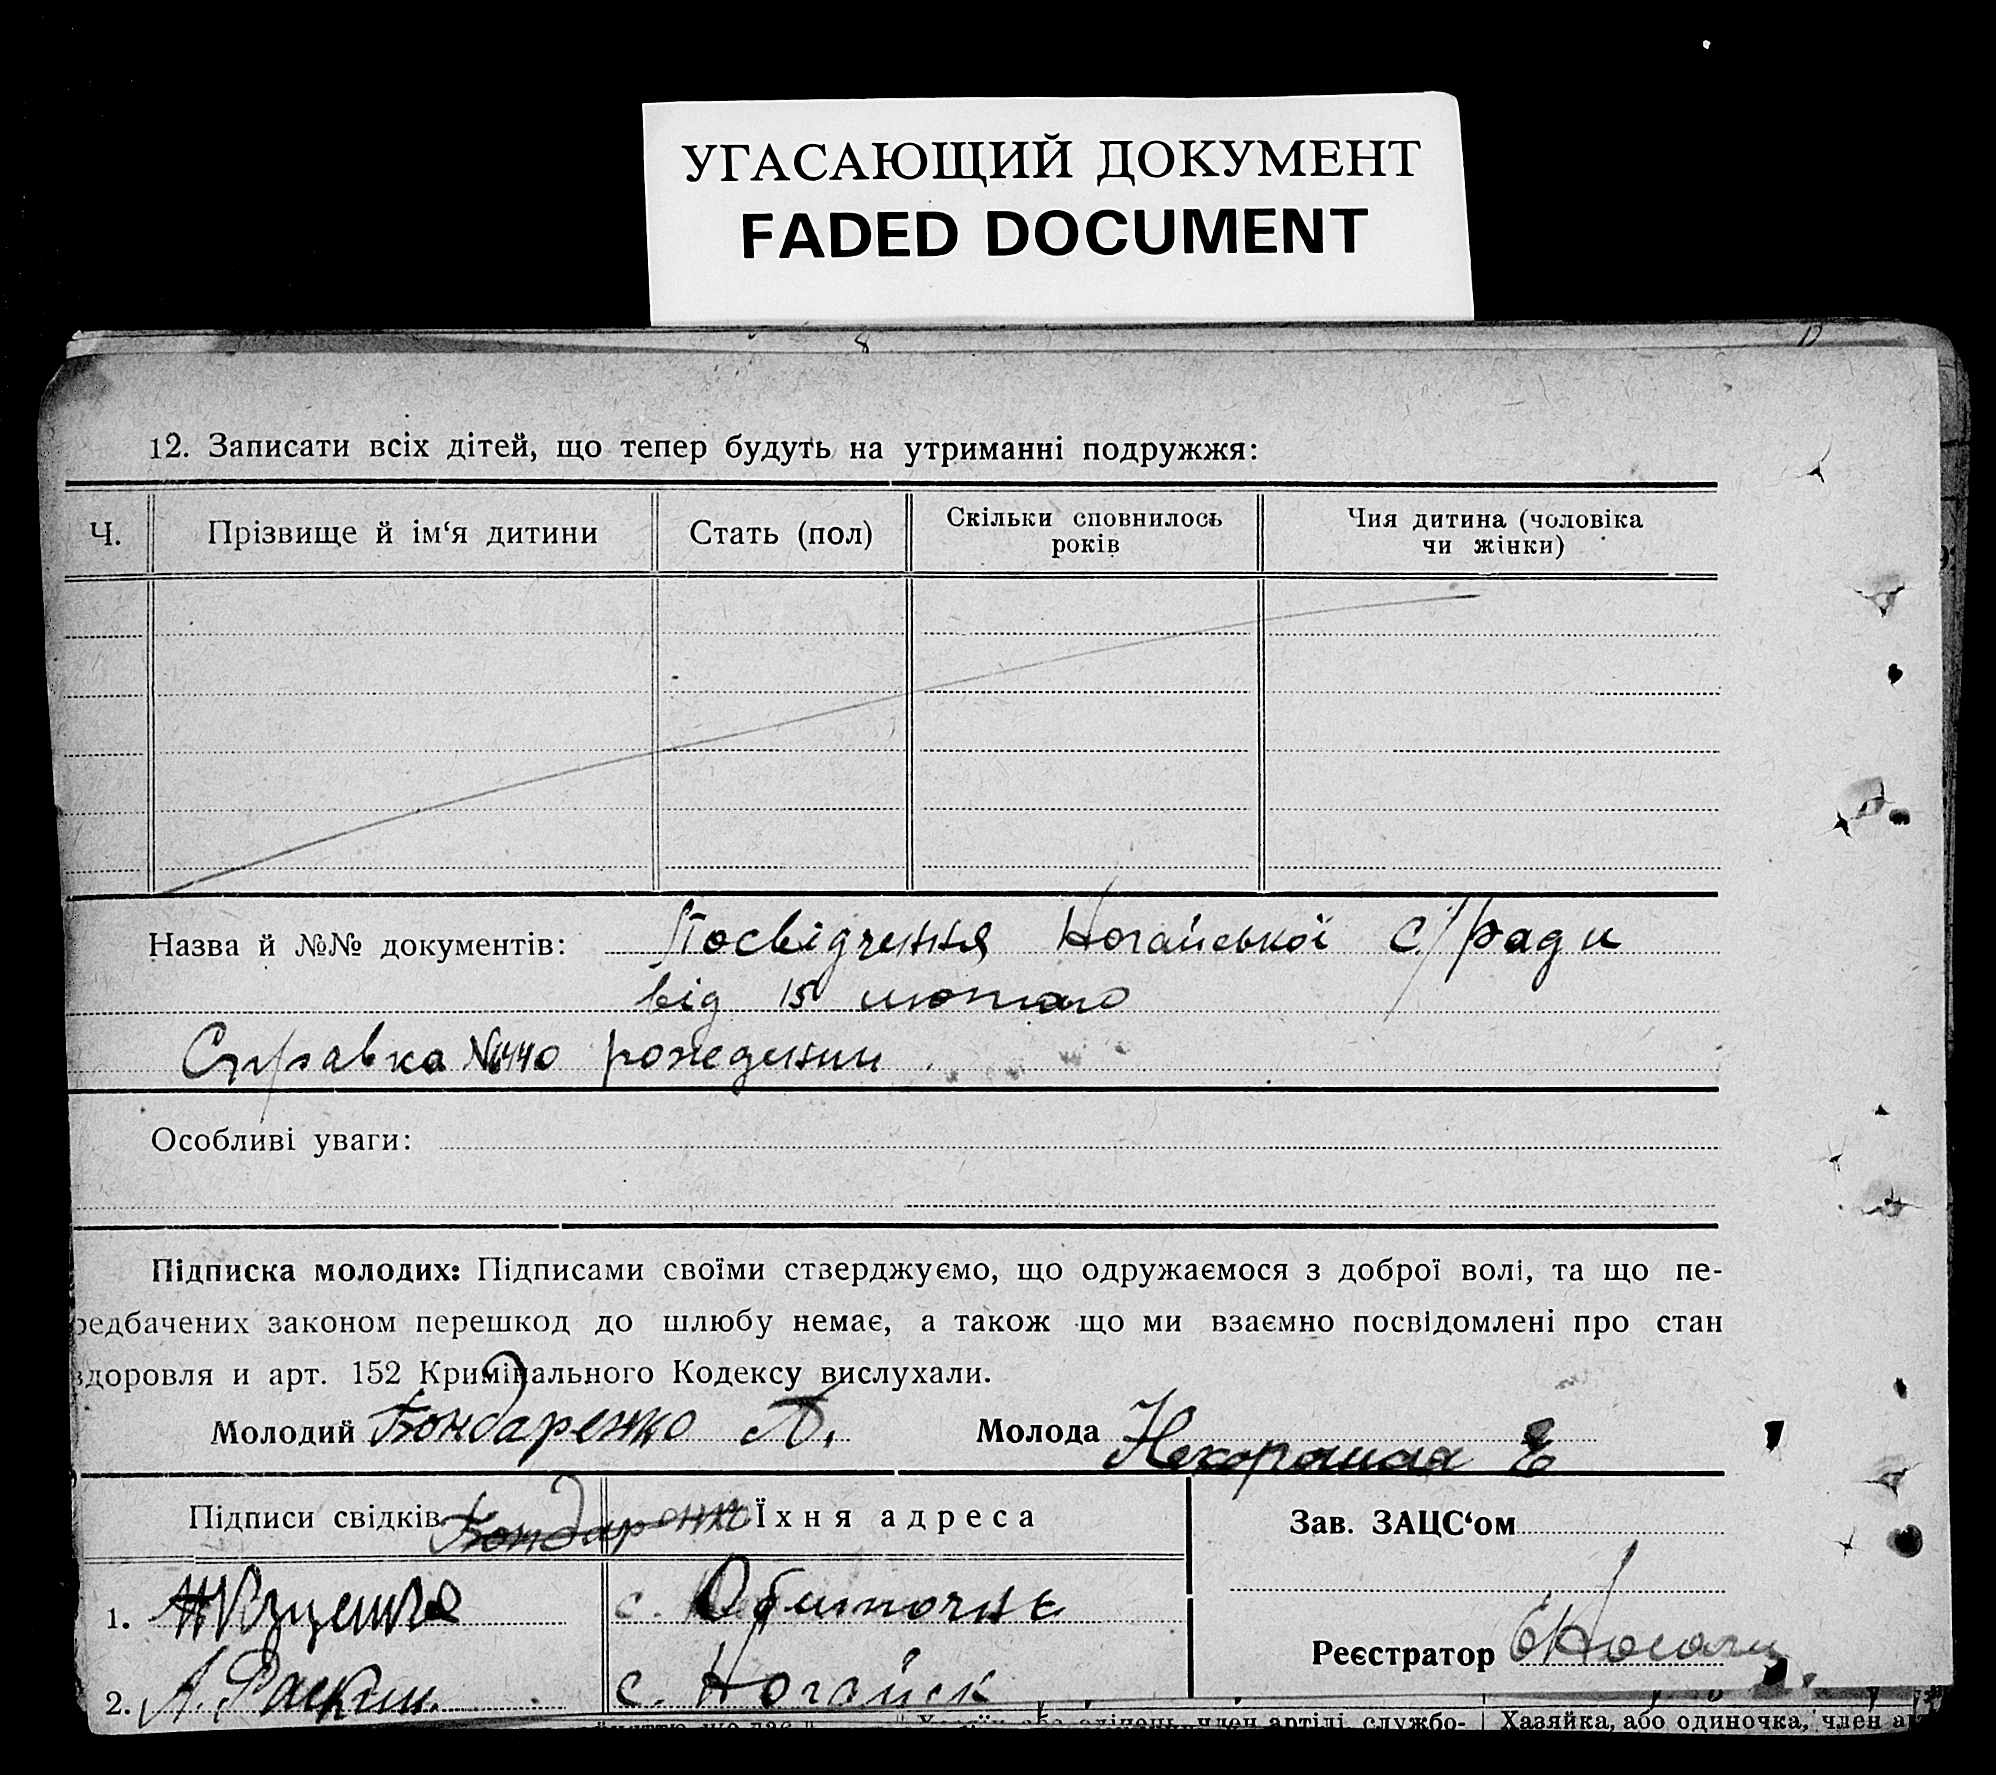 УГАСАЮЩИЙ ДОКУМЕНТ
FADED DOCUMENT
12. Записати всіх дітей, що тепер будуть на утриманні подружжя:
Ч. Прізвище й ім‘я дитини Стать (пол) Скільки сповнилось років Чия дитина (чоловіка чи жінки)
Назва й №№ документів: Посвідчення Ногайської с/ради
від 15 лютого
Справка № рождении
Особливі уваги:
Підписка молодих: Підписами своїми стверджуємо, що одружаємося з доброї волі, та що пе-
редбачених законом перешкод до шлюбу немає, а також що ми взаємно посвідомлені про стан
здоровля и арт. 152 Кримінального Кодексу вислухали.
Молодий Бондаренко Молода Нехорошая Е
Підписи свідків Бондаренко Їхня адреса Зав. ЗАЦС‘ом
1. с. Обиточне
Реєстратор
2. с. Ногайск
член артілі, службо- Хазяйка, або одиночка, член